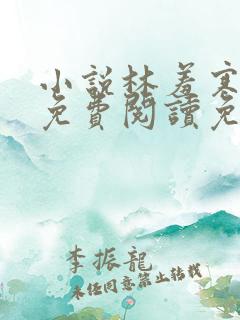 小說林羞寒
免費閱讀免
李振龍
未經同意禁止轉載